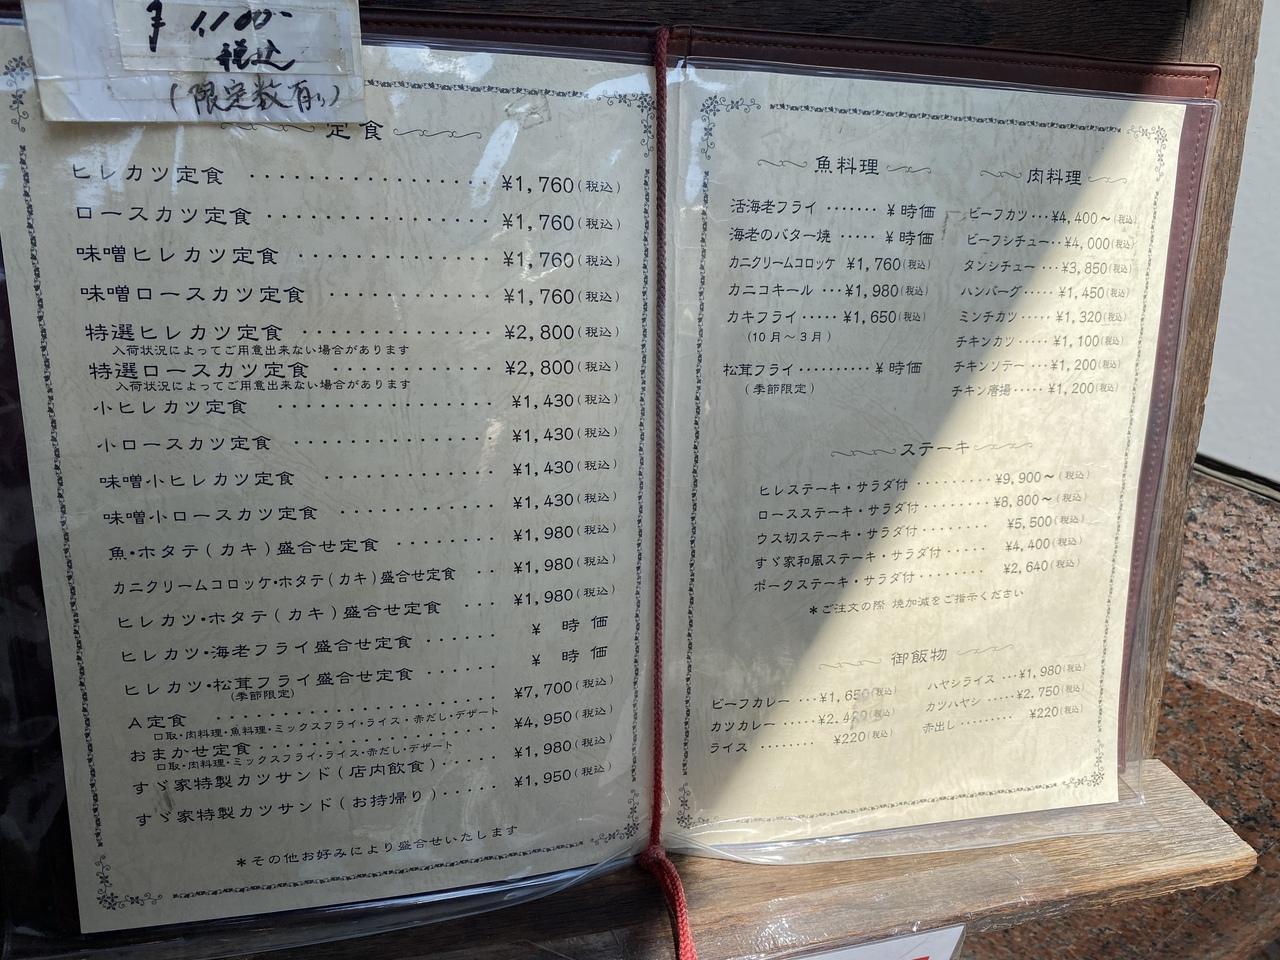 ¥1,100-
税込
(限定数有り)
定食
ヒレカツ定食 ¥1,760(税込)
ロースカツ定食 ¥1,760(税込)
味噌ヒレカツ定食 ¥1,760(税込)
味噌ロースカツ定食 ¥1,760(税込)
特選ヒレカツ定食 ¥2,800(税込)
入荷状況によってご用意出来ない場合があります
特選ロースカツ定食 ¥2,800(税込)
入荷状況によってご用意出来ない場合があります
小ヒレカツ定食 ¥1,430(税込)
小ロースカツ定食 ¥1,430(税込)
味噌小ヒレカツ定食 ¥1,430(税込)
味噌小ロースカツ定食 ¥1,430(税込)
魚・ホタテ(カキ)盛合せ定食 ¥1,980(税込)
カニクリームコロッケ・ホタテ(カキ)盛合せ定食 ¥1,980(税込)
ヒレカツ・ホタテ(カキ)盛合せ定食 ¥1,980(税込)
ヒレカツ・海老フライ盛合せ定食 ¥ 時価
ヒレカツ・松茸フライ盛合せ定食 ¥ 時価
(季節限定)
A定食 ¥7,700(税込)
口取・肉料理・魚料理・ミックスフライ・ライス・赤だし・デザート
おまかせ定食 ¥4,950(税込)
口取・肉料理・ミックスフライ・ライス・赤だし・デザート
すゞ家特製カツサンド(店内飲食) ¥1,980(税込)
すゞ家特製カツサンド(お持帰り) ¥1,950(税込)
*その他お好みにより盛合せいたします
魚料理
活海老フライ ¥時価
海老のバター焼 ¥時価
カニクリームコロッケ ¥1,760(税込)
カニコキール ¥1,980(税込)
カキフライ ¥1,650(税込)
(10月〜3月)
松茸フライ ¥時価
(季節限定)
肉料理
ビーフカツ ¥4,400〜(税込)
ビーフシチュー ¥4,000(税込)
タンシチュー ¥3,850(税込)
ハンバーグ ¥1,450(税込)
ミンチカツ ¥1,320(税込)
チキンカツ ¥1,100(税込)
チキンソテー ¥1,200(税込)
チキン唐揚 ¥1,200(税込)
ステーキ
ヒレステーキ・サラダ付 ¥9,900〜(税込)
ロースステーキ・サラダ付 ¥8,800〜(税込)
ウス切ステーキ・サラダ付 ¥5,500(税込)
すゞ家和風ステーキ・サラダ付 ¥4,400(税込)
ポークステーキ・サラダ付 ¥2,640(税込)
*ご注文の際 焼加減をご指示ください
御飯物
ビーフカレー ¥1,650(税込)
カツカレー (税込)
ライス ¥220(税込)
ハヤシライス ¥1,980(税込)
カツハヤシ ¥2,750(税込)
赤出し ¥220(税込)